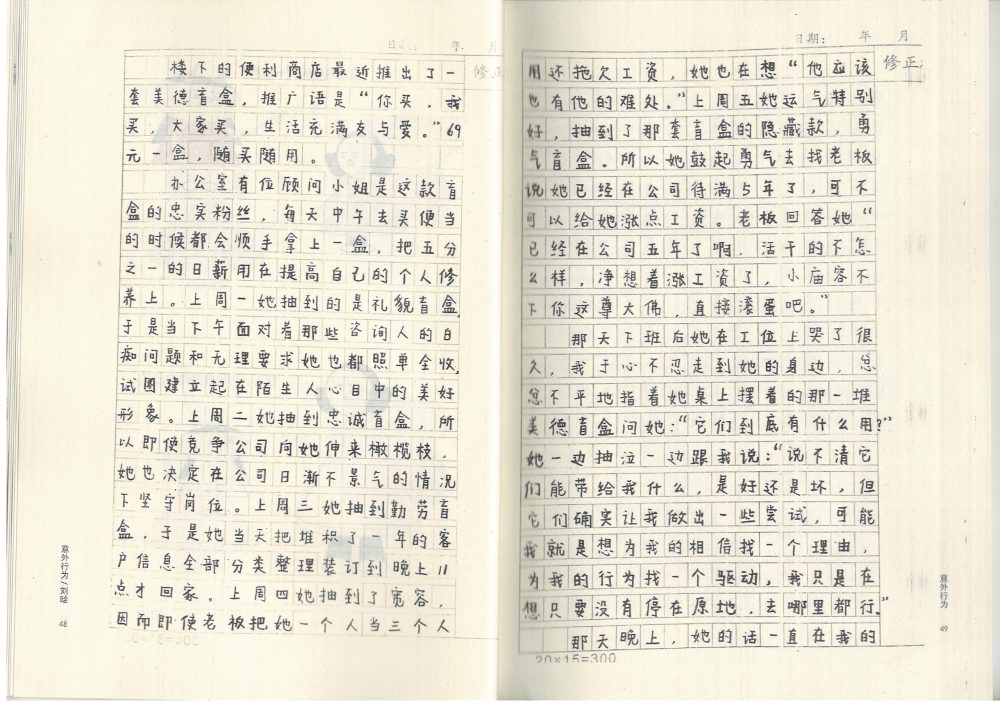 日期: 年 月
修正
楼下的便利商店最近推出了一
套美德盲盒，推广语是“你买，我
买，大家买，生活充满友与爱。”69
元一盒，随买随用。
办公室有位顾问小姐是这款盲
盒的忠实粉丝，每天中午去买便当
的时候都会顺手拿上一盒，把五分
之一的日薪用在提高自己的个人修
养上。上周一她抽到的是礼貌盲盒，
于是当下午面对着那些咨询人的白
痴问题和无理要求她也都照单全收，
试图建立起在陌生人心目中的美好
形象。上周二她抽到忠诚盲盒，所
以即使竞争公司向她伸来橄榄枝，
她也决定在公司日渐不景气的情况
下坚守岗位。上周三她抽到勤劳盲
盒，于是她当天把堆积了一年的客
户信息全部分类整理装订到晚上11
点才回家。上周四她抽到了宽容，
因而即使老板把她一个人当三个人
意外行为/刘晗
48
日期: 年 月
修正:
用还拖欠工资，她也在想“他应该
也有他的难处。”上周五她运气特别
好，抽到了那套盲盒的隐藏款，勇
气盲盒。所以她鼓起勇气去找老板
说她已经在公司待满5年了，可不
可以给她涨点工资。老板回答她“
已经在公司五年了啊，活干的不怎
么样，净想着涨工资了，小庙容不
下你这尊大佛，直接滚蛋吧。”
那天下班后她在工位上哭了很
久，我于心不忍走到她的身边，忿
忿不平地指着她桌上摆着的那一堆
美德盲盒问她：“它们到底有什么用？”
她一边抽泣一边跟我说：“说不清它
们能带给我什么，是好还是坏，但
它们确实让我做出一些尝试，可能
我就是想为我的相信找一个理由，
为我的行为找一个驱动，我只是在
想只要没有停在原地，去哪里都行。”
那天晚上，她的话一直在我的
20×15=300
意外行为
49